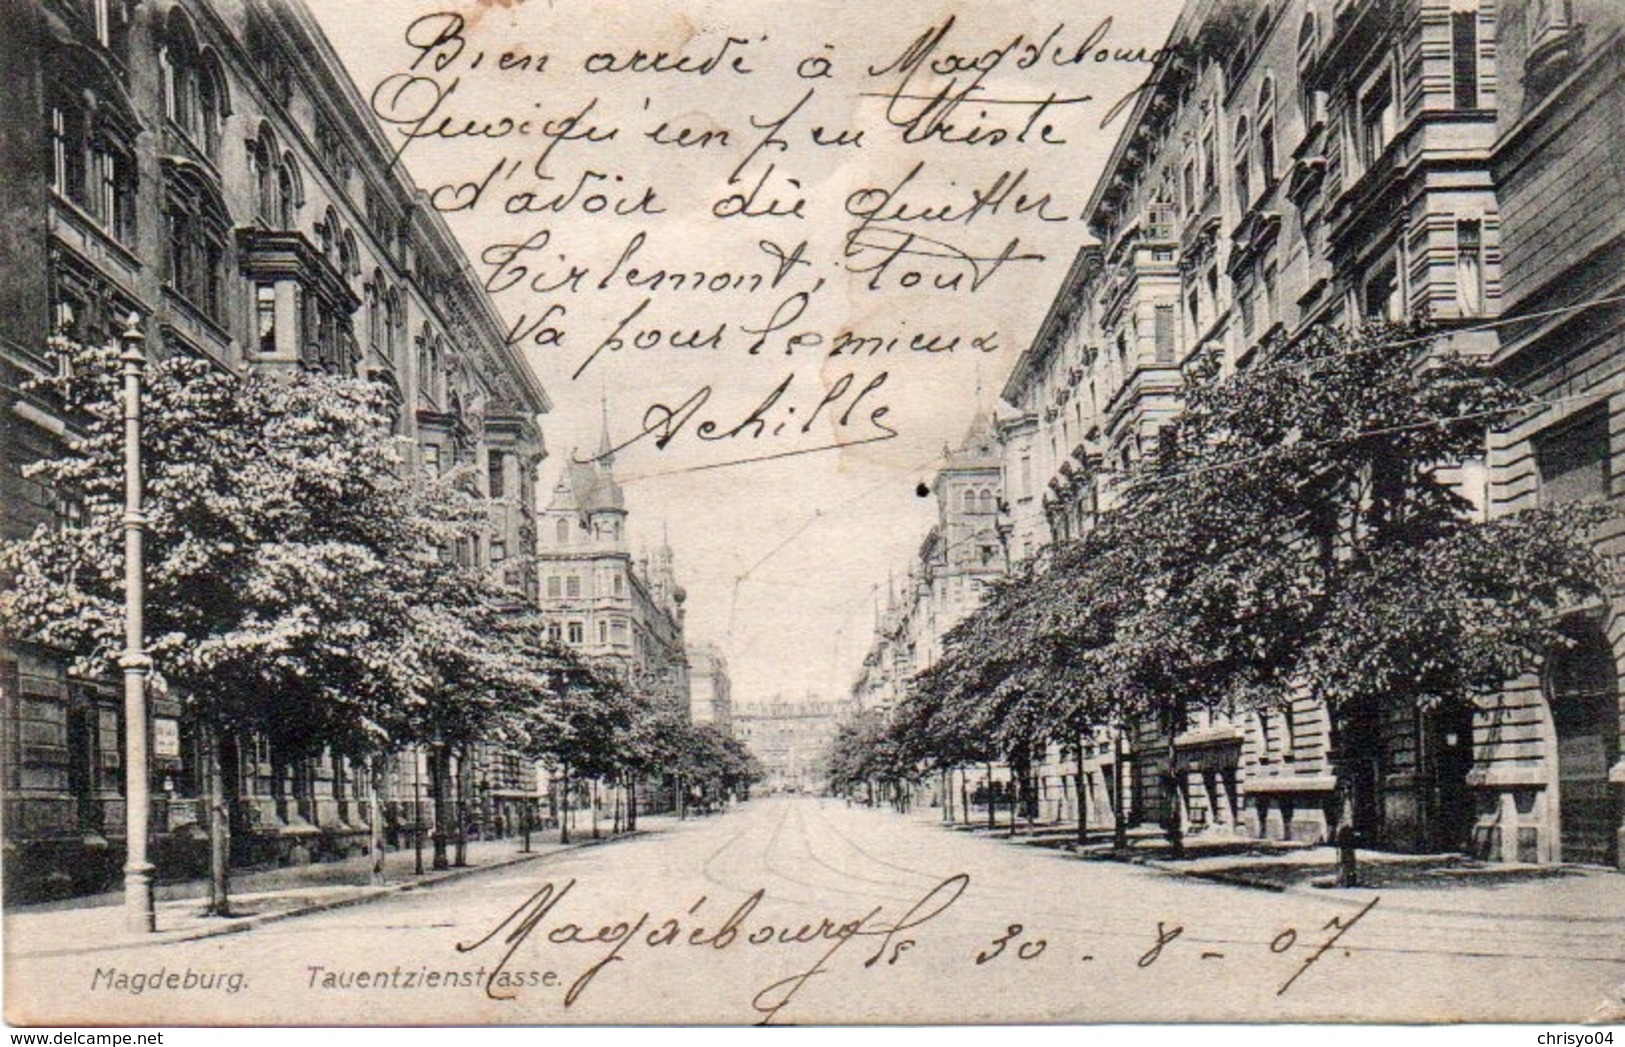 Bien arrivé à Magdebourg
Quoiqu'un peu triste
d'avoir dû quitter
Tirlemont, tout
va pour le mieux
Achille
Magdebourg le 30 - 8 - 07.
Magdeburg. Tauentzienstrasse.
www.delcampe.net
chrisyo04